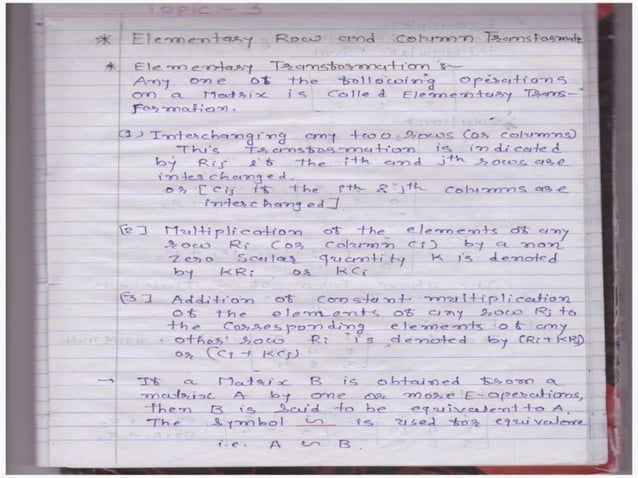 TOPIC - 3
* Elementary Row and Column Transformate
* Elementary Transformation :-
Any one of the following operations
on a Matrix is Called Elementary Trans-
Formation.
(1) Interchanging any two rows (or columns)
This Transformation is indicated
by Rij if the ith and jth rows are
interchanged.
or [Cij if the ith & jth columns are
interchanged]
[2] Multiplication of the elements of any
row Ri (or column Ci) by a non
zero Scalar quantity K is denoted
by KRi or KCi
[3] Addition of constant multiplication
of the elements of any row Rj to
the Corresponding elements of any
other row Ri is denoted by (Ri+KRj)
or (Ci + KCj)
→ If a Matrix B is obtained from a
matrix A by one or more E-operations,
then B is said to be equivalent to A.
The Symbol ∽ is used for equivalence
i.e. A ∽ B.